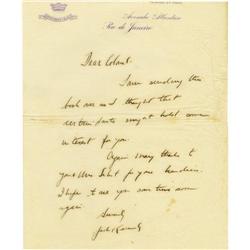 Avenida Atlantica
Rio de Janeiro
Dear Colonel
I am sending this
book over as I thought that
certain parts might hold some
interest for you.
Again many thanks to
you & Mrs for your kindness.
I hope to see you some time soon
again.
Sincerely